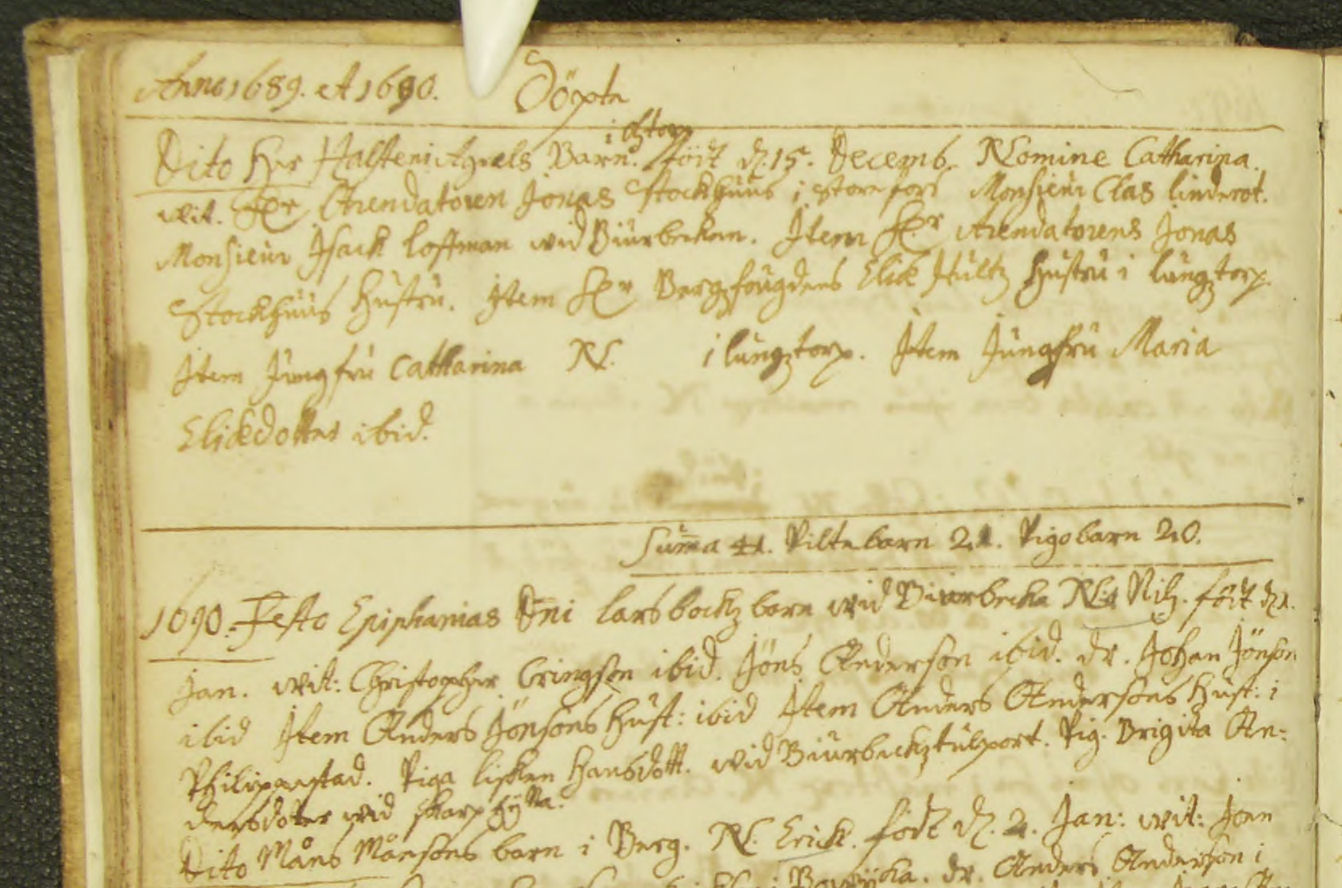 Anno 1689. et 1690. Döpta
i Åstorp
Dito Hr Halsteni Barn. född d. 15. Decemb. Nomine Catharina.
wit. Hr Arendatoren Jonas Stockhuus i storefors Monsieur Clas linderot.
Monsieur Isack loffman wid Biurbeken. Item Hr Arendatorens Jonas
Stockhuus hustru. Item Hr Bergfougdens Elick Hultz hustru i lungztorp.
Item Jungfru Catharina N. i lungztorp. Item Jungfru Maria
Elickdotter ibid.
Summa 41. Piltebarn 21. Pigobarn 20.
1690. Festo Epiphanias Dni lars barn wid Biurbecka N: Nilz. född d. 1.
Jan. wit: Christopher ibid. Jöns Anderson ibid. dr. Johan Jönson
ibid Item Anders Jönsons hust: ibid Item Anders Andersons hust: i
Philipzstad. Piga lisken Hansdott. wid Pig. Brigita An-
dersdotter wid skarphyttan.
Dito Måns Månsons barn i Berg. N. Erick. född d. 2. Jan: wit: Joen
dr. Anders Anderson i